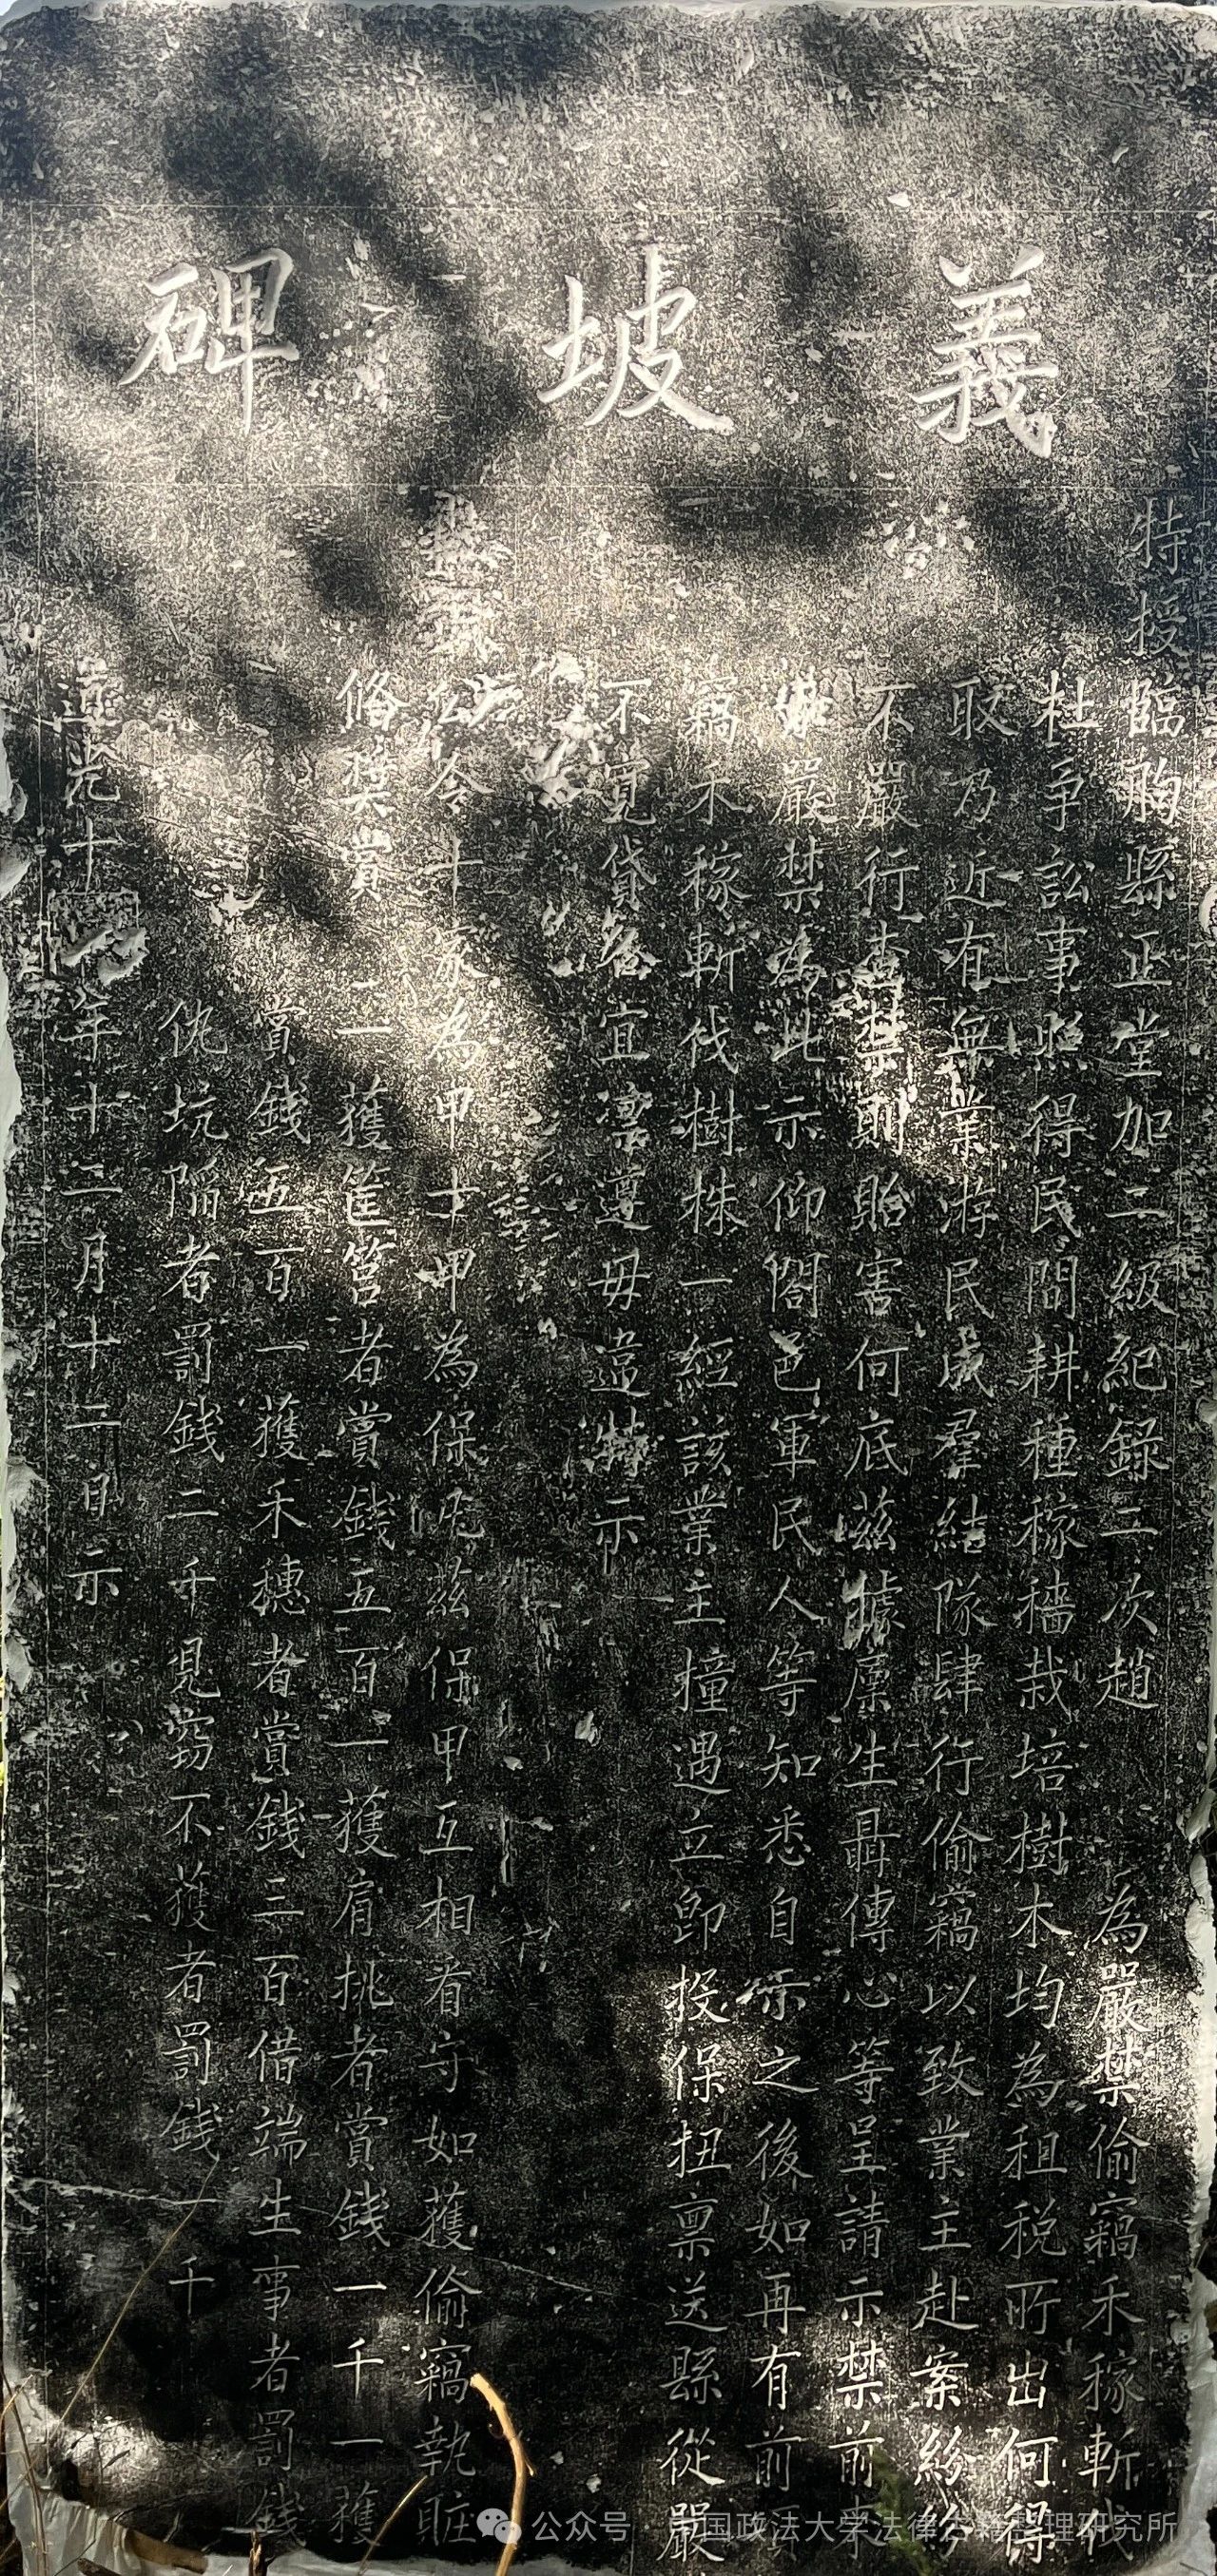 義坡碑
特授臨朐縣正堂加二級紀錄二次趙 為嚴禁偷竊禾稼斬伐
杜爭訟事照得民間耕種稼穡栽培樹木均為租税所出何得
取乃近有無業游民成羣結隊肆行偷竊以致業主赴案紛紛
不嚴行查禁則貽害何底茲據廩生聶傳心等呈請示禁前來
嚴禁為此示仰閤邑軍民人等知悉自示之後如再有前
竊禾稼斬伐樹株一經該業主撞遇立即投保扭禀送縣從嚴
不寛貸各宜凛遵毋違特示
公令十家為甲十甲為保茲保甲互相看守如獲偷竊執贓
條奬賞 一獲筐筥者賞錢五百一獲肩挑者賞錢一千一獲
賞錢五百一獲禾穗者賞錢三百借端生事者罰錢
仇坑陷者罰錢二千見竊不獲者罰錢一千
道光十 年十二月十二日示
公众号 国政法大学法律古籍整理研究所